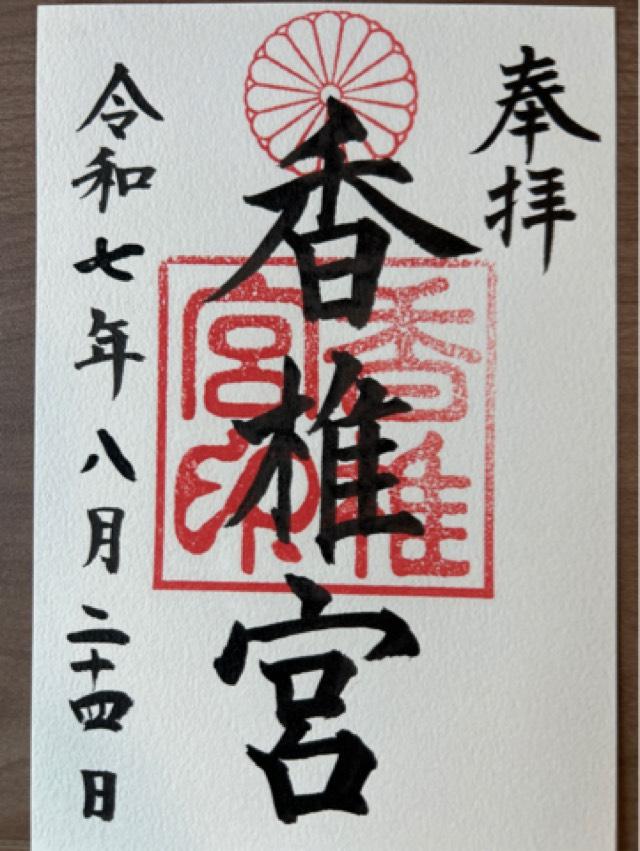 奉拝
香椎宮
香椎宮印
令和七年八月二十四日